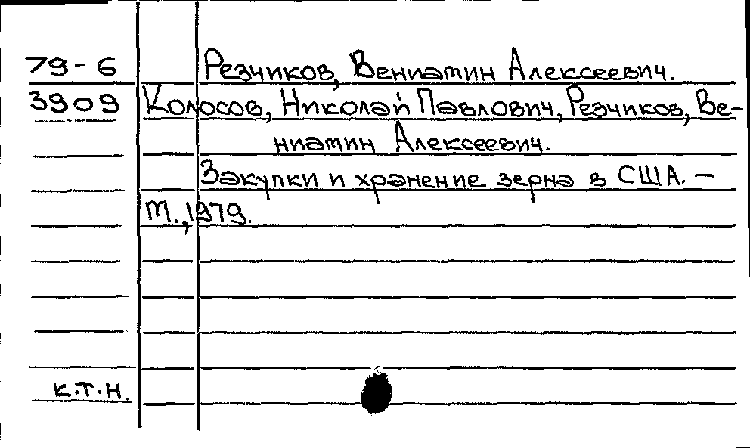 79-6 Резчиков, Вениамин Алексеевич.
3909 Колосов, Николай Павлович, Резчиков, Ве-
ниамин Алексеевич.
Закупки и хранение зерна в США. –
М., 1979.
к.т.н.